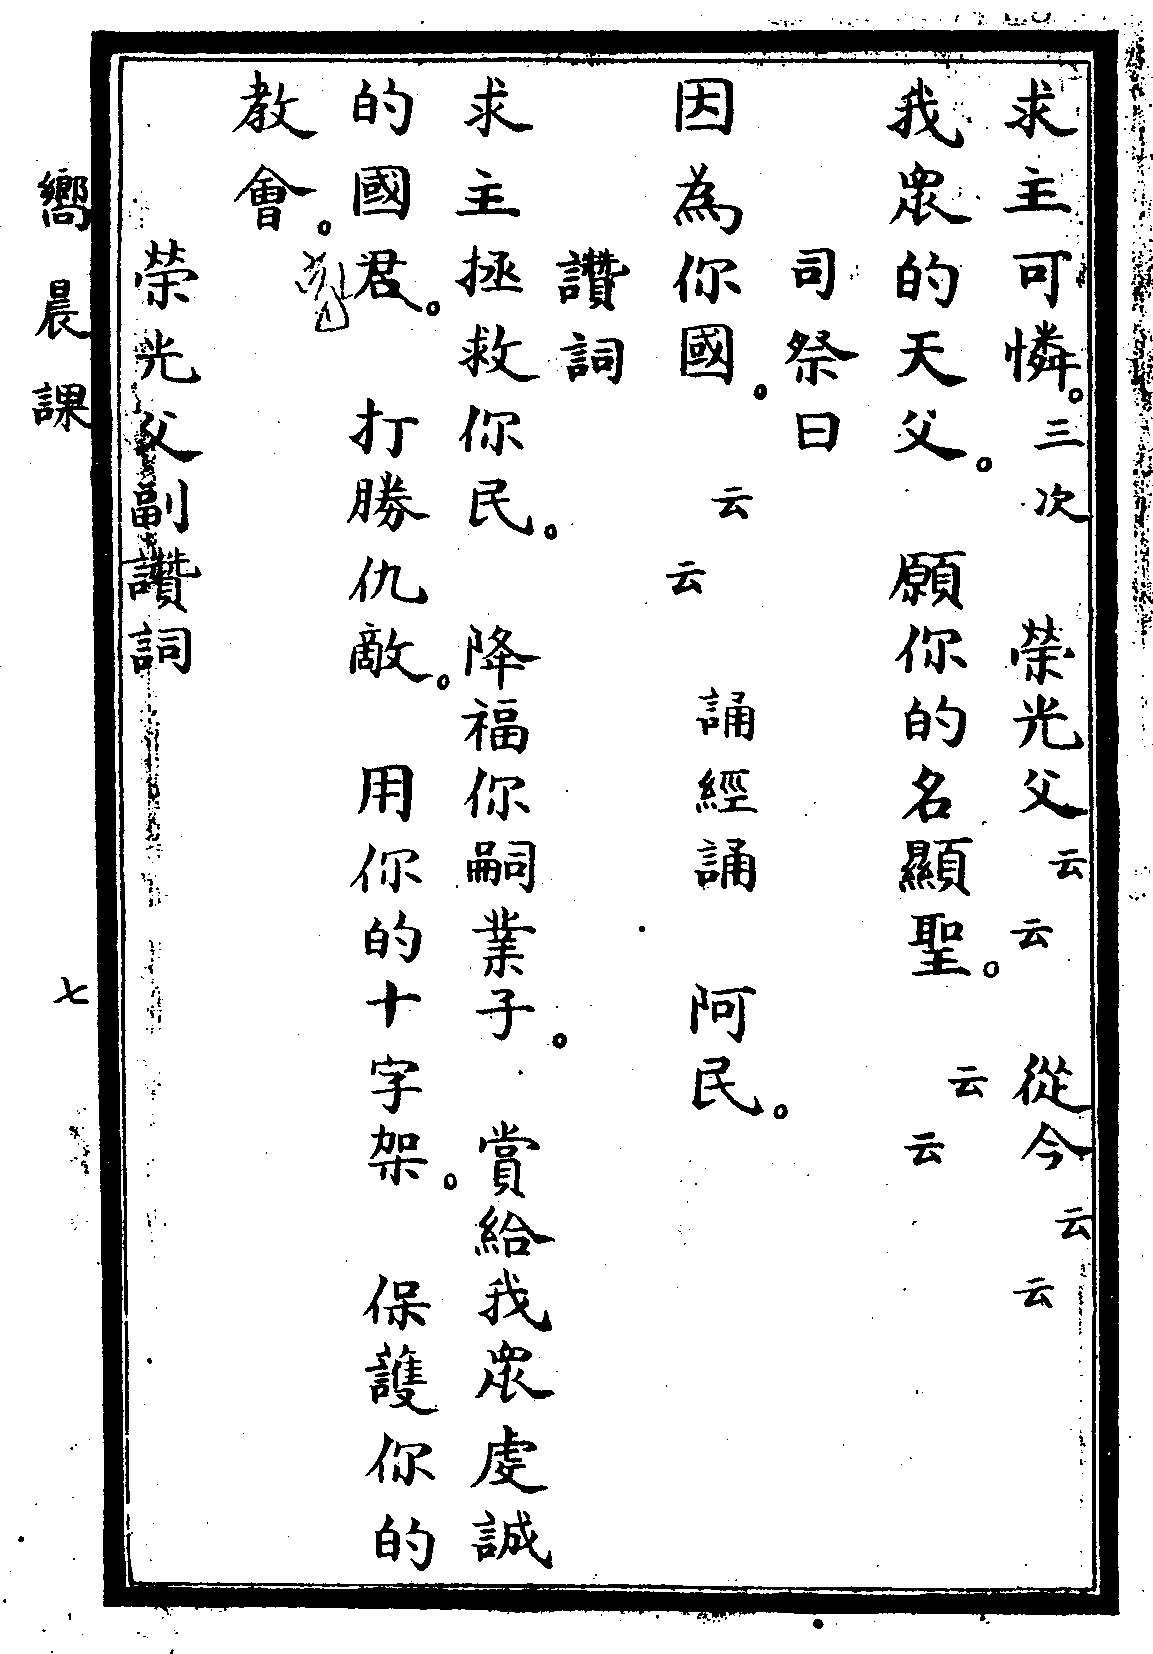 求主可憐。三次　榮光父云云　從今云云
我眾的天父。　願你的名顯聖。云云
司祭曰
因為你國。云云　誦經誦　阿民。
讚詞
求主拯救你民。　降福你嗣業子。　賞給我眾虔誠
的國君。　打勝仇敵。　用你的十字架。　保護你的
教會。
榮光父副讚詞
嚮晨課　七